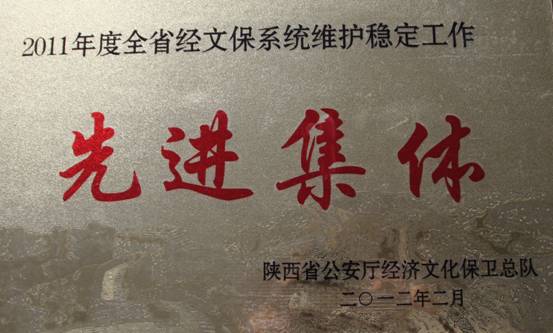 2011年度全省经文保系统维护稳定工作
先进集体
陕西省公安厅经济文化保卫总队
二〇一二年二月